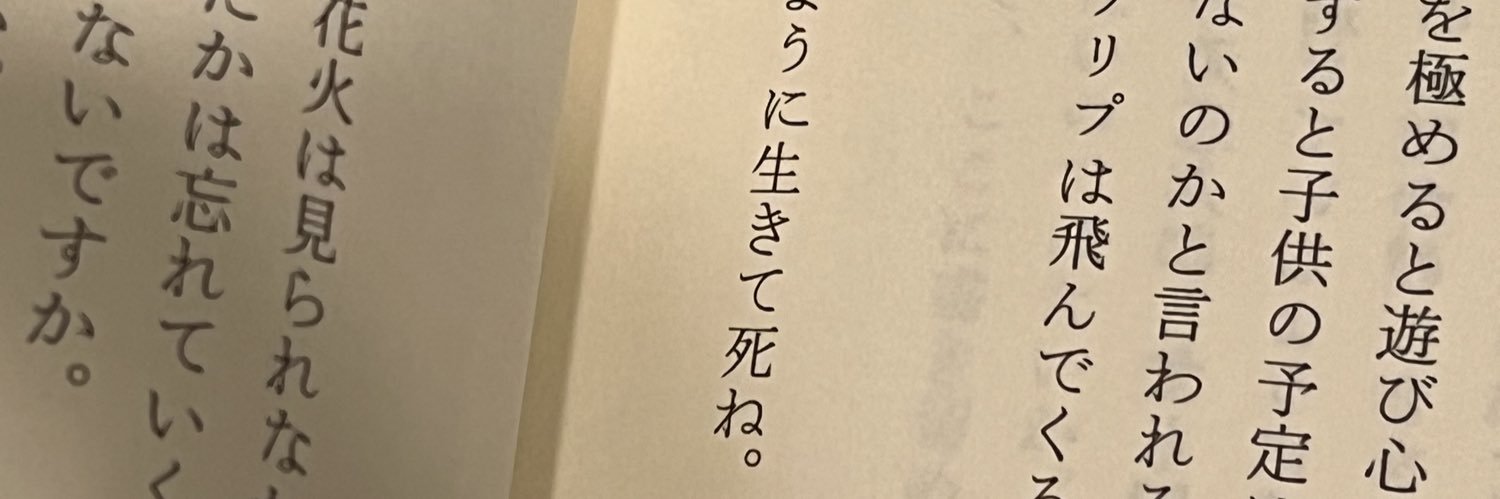 を極めると遊び心
すると子供の予定
ないのかと言われる
リプは飛んでくる
ように生きて死ね。
花火は見られな
かは忘れていく
ないですか。